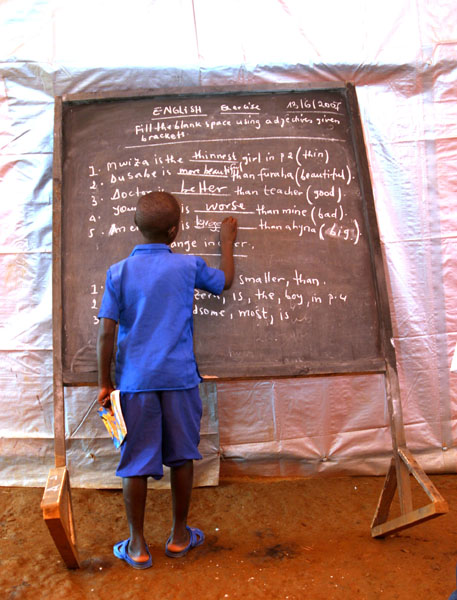 ENGLISH Exercise 13/6/2005
Fill the blank space using adjectives given
brackett
1. Mwiza is the thinnest girl in p2 (thin)
2. Dusabe is more beautiful than furaha (beautiful).
3. Doctor is better than teacher (good).
4. your is worse than mine (bad).
5. An is than a hyna (big).
change in order.
1. smaller, than.
2. is, the, boy, in p.4
3. most, is